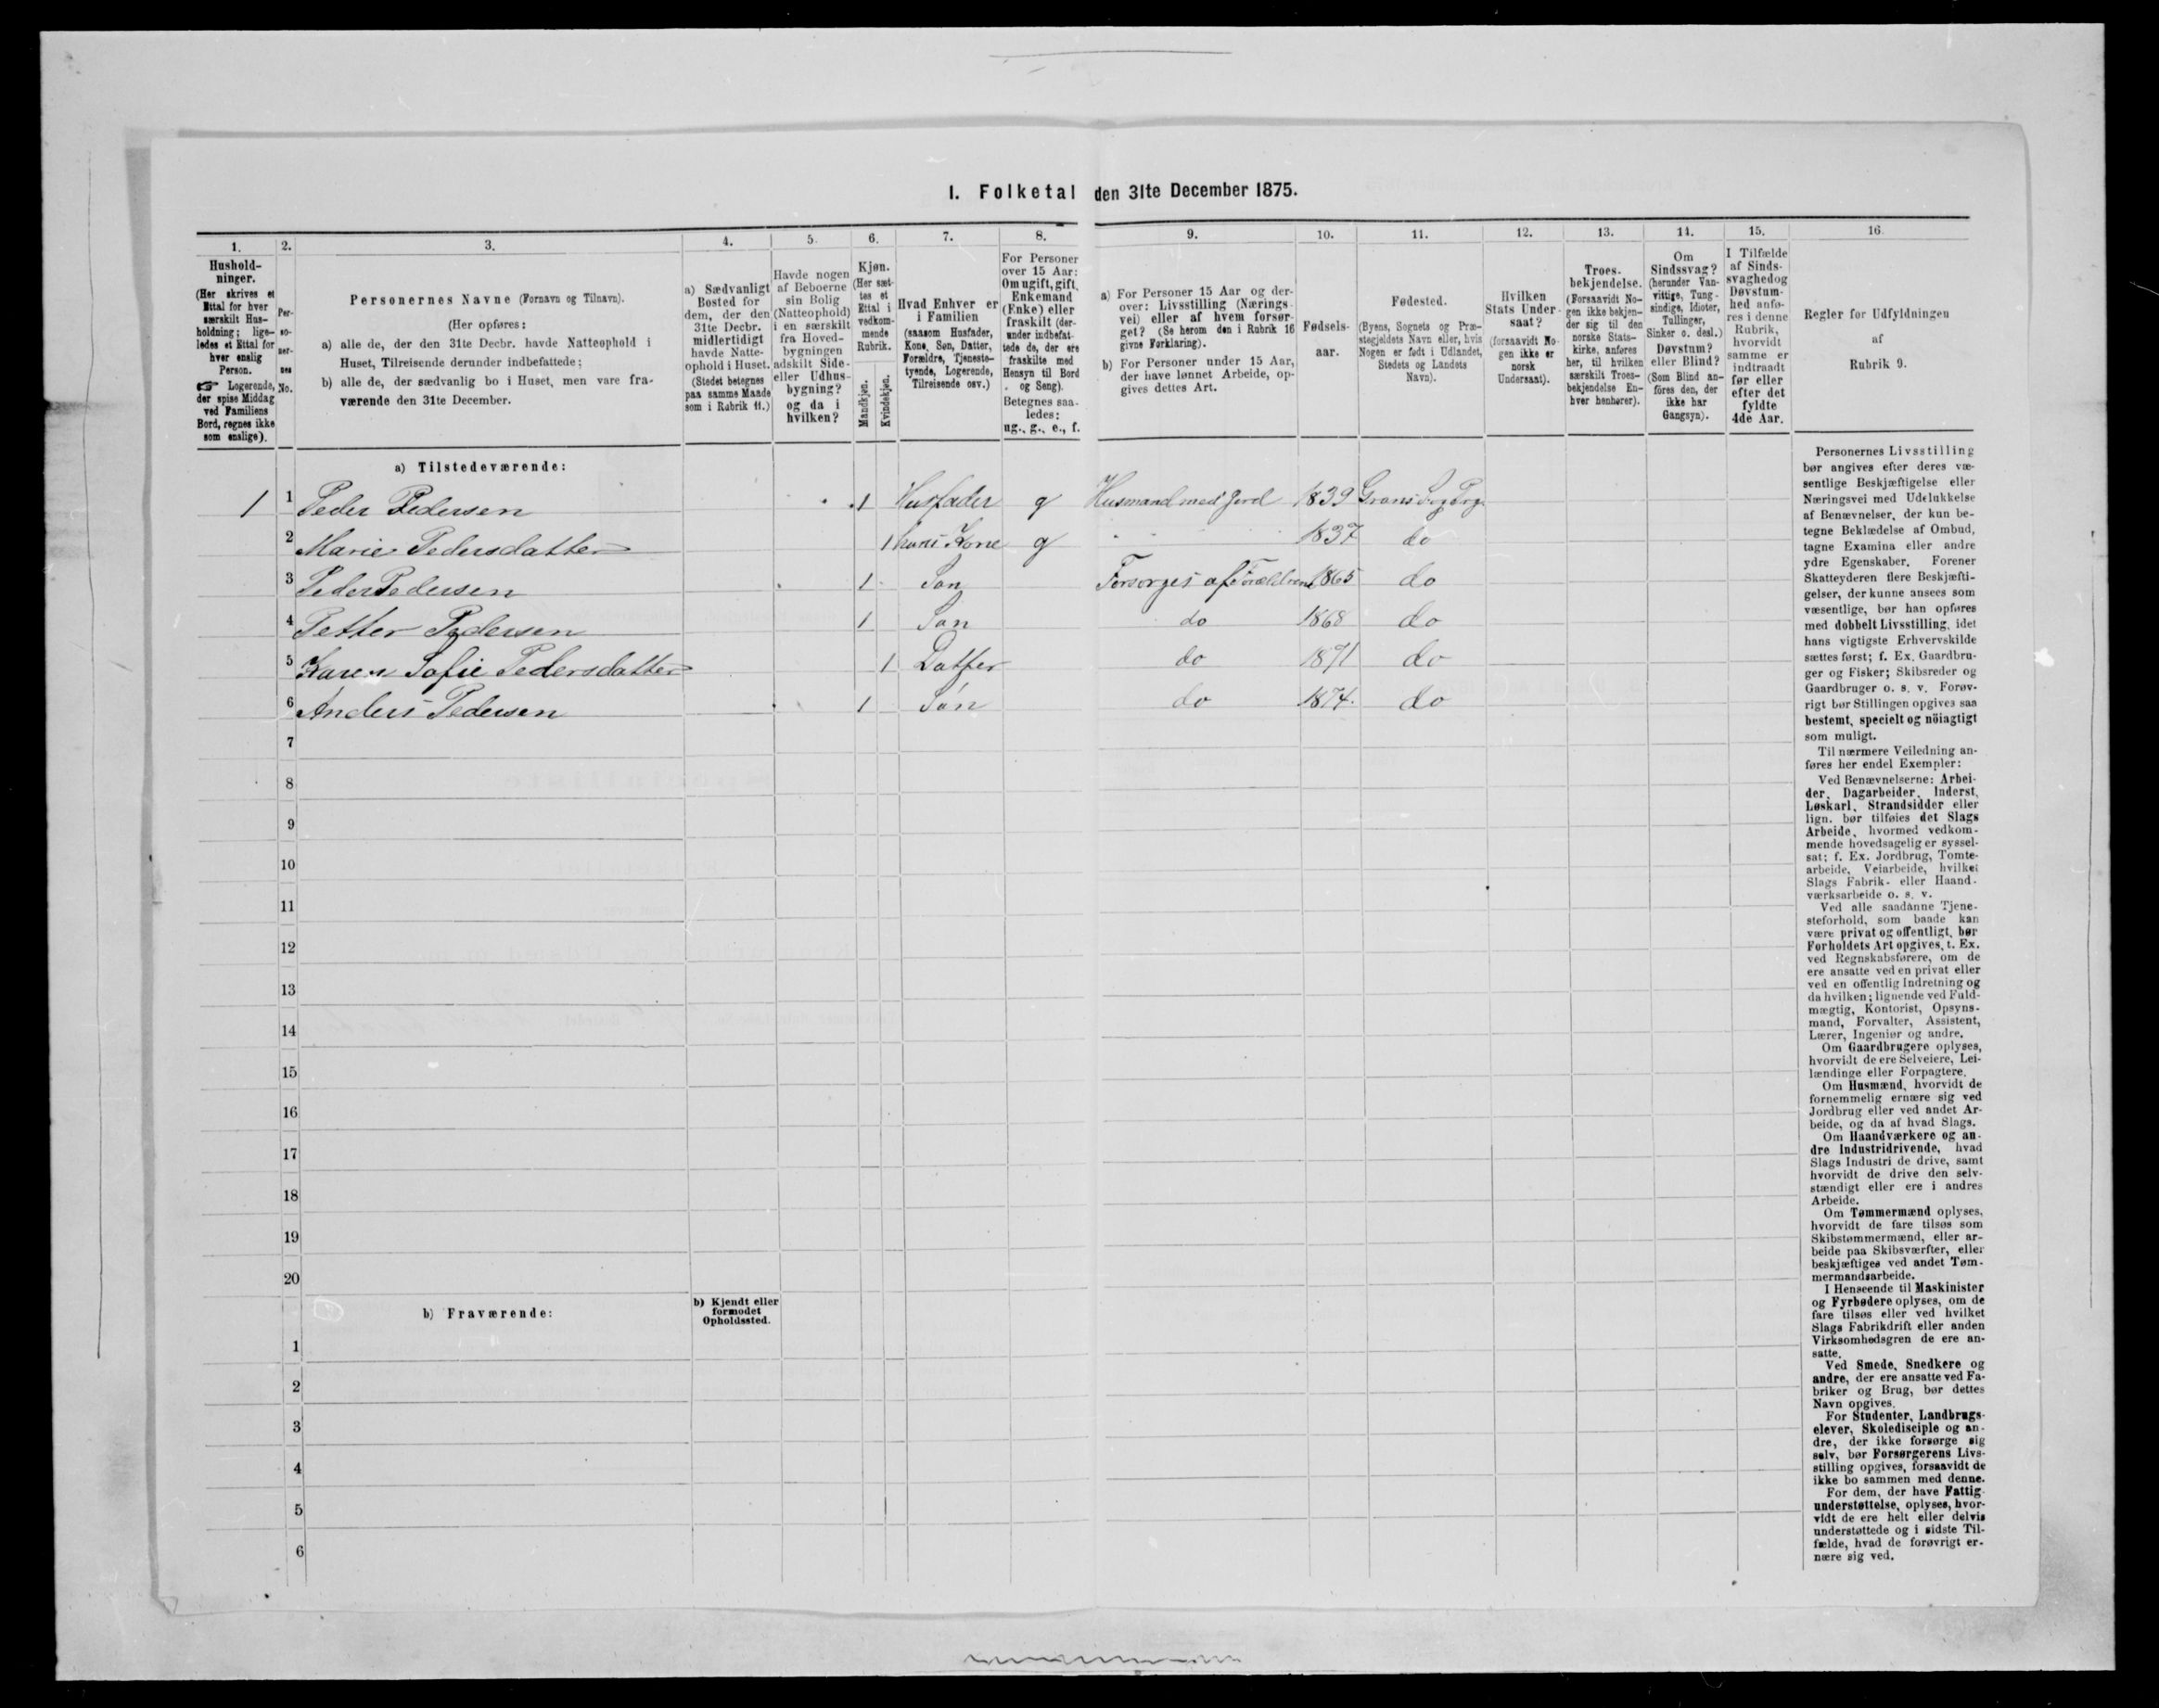 I. Folketal den 31te December 1875.
1.
Hushold-
ninger.
(Her skrives et
Ettal for hver
særskilt Hus-
holdning; lige-
ledes et Ettal for
hver enslig
Person.
☞ Logerende,
der spise Middag
ved Familiens
Bord, regnes ikke
som enslige).
2.
Per-
so-
ner-
nes
No.
3.
Personernes Navne (Fornavn og Tilnavn).
(Her opføres:
a) alle de, der den 31te Decbr. havde Natteophold i
Huset, Tilreisende derunder indbefattede;
b) alle de, der sædvanlig bo i Huset, men vare fra-
værende den 31te December.
4.
a) Sædvanligt
Bosted for
dem, der den
31te Decbr.
midlertidigt
havde Natte-
ophold i Huset.
(Stedet betegnes
paa samme Maade
som i Rubrik 11.)
5.
Havde nogen
af Beboerne
sin Bolig
(Natteophold)
i en særskilt
fra Hoved-
bygningen
adskilt Side-
eller Udhus-
bygning?
og da i
hvilken?
6.
Kjøn.
(Her sæt-
tes et
Ettal i
vedkom-
mende
Rubrik.
Mandkjøn.
Kvindekjøn.
7.
Hvad Enhver er
i Familien
(saasom Husfader,
Kone, Søn, Datter,
Forældre, Tjeneste-
tyende, Logerende,
Tilreisende osv.)
8.
For Personer
over 15 Aar:
Om ugift, gift,
Enkemand
(Enke) eller
fraskilt (der-
under indbefat-
tede de, der ere
fraskilte med
Hensyn til Bord
og Seng).
Betegnes saa-
ledes:
ug., g., e., f.
9.
a) For Personer 15 Aar og der-
over: Livsstilling (Nærings-
vei) eller af hvem forsør-
get? (Se herom den i Rubrik 16
givne Forklaring).
b) For Personer under 15 Aar,
der have lønnet Arbeide, op-
gives dettes Art.
10.
Fødsels-
aar.
11.
Fødested.
(Byens, Sognets og Præ-
stegjeldets Navn eller, hvis
Nogen er født i Udlandet,
Stedets og Landets
Navn).
12.
Hvilken
Stats Under-
saat?
(forsaavidt No-
gen ikke er
norsk
Undersaat).
13.
Troes-
bekjendelse.
(Forsaavidt No-
gen ikke bekjen-
der sig til den
norske Stats-
kirke, anføres
her, til hvilken
særskilt Troes-
bekjendelse En-
hver henhører).
14.
Om
Sindssvag?
(herunder Van-
vittige, Tung-
sindige, Idioter,
Tullinger,
Sinker o. desl.)
Døvstum?
eller Blind?
(Som Blind an-
føres den, der
ikke har
Gangsyn).
15.
I Tilfælde
af Sinds-
svaghed og
Døvstum-
hed anfø-
res i denne
Rubrik,
hvorvidt
samme er
indtraadt
før eller
efter det
fyldte
4de Aar.
16
Regler for Udfyldningen
af
Rubrik 9.
a) Tilstedeværende:
1 1 Peder Pedersen 1 Husfader g Husmand med Jord 1839 Grans Sog Prg.
2 Marie Pedersdatter 1 hans Kone g 1837 do
3 Peder Pedersen 1 Søn Forsørges af Forældrene 1865 do
4 Petter Pedersen 1 Søn do 1868 do
5 Karen Sofie Pedersdatter 1 Datter do 1871 do
6 Anders Pedersen 1 Søn do 1874. do
7
8
9
10
11
12
13
14
15
16
17
18
19
20
b) Fraværende:
b) Kjendt eller
formodet
Opholdssted.
1
2
3
4
5
6
Personernes Livsstilling
bør angives efter deres væ-
sentlige Beskjæftigelse eller
Næringsvei med Udelukkelse
af Benævnelser, der kun be-
tegne Beklædelse af Ombud,
tagne Examina eller andre
ydre Egenskaber. Forener
Skatteyderen flere Beskjæfti-
gelser, der kunne ansees som
væsentlige, bør han opføres
med dobbelt Livsstilling, idet
hans vigtigste Erhvervskilde
sættes først; f. Ex. Gaardbru-
ger og Fisker; Skibsreder og
Gaardbruger o. s. v. Forøv-
rigt bør Stillingen opgives saa
bestemt, specielt og nöiagtigt
som muligt.
Til nærmere Veiledning an-
føres her endel Exempler:
Ved Benævnelserne: Arbei-
der, Dagarbeider, Inderst,
Løskarl, Strandsidder eller
lign. bør tilføies det Slags
Arbeide, hvormed vedkom-
mende hovedsagelig er syssel-
sat; f. Ex. Jordbrug, Tomte-
arbeide, Veiarbeide, hvilket
Slags Fabrik- eller Haand-
værksarbeide o. s. v.
Ved alle saadanne Tjene-
steforhold, som baade kan
være privat og offentligt, bør
Forholdets Art opgives, t. Ex.
ved Regnskabsførere, om de
ere ansatte ved en privat eller
ved en offentlig Indretning og
da hvilken; lignende ved Fuld-
mægtig, Kontorist, Opsyns-
mand, Forvalter, Assistent,
Lærer, Ingeniør og andre.
Om Gaardbrugere oplyses,
hvorvidt de ere Selveiere, Lei-
lændinge eller Forpagtere.
Om Husmænd, hvorvidt de
fornemmelig ernære sig ved
Jordbrug eller ved andet Ar-
beide, og da af hvad Slags.
Om Haandværkere og an-
dre Industridrivende, hvad
Slags Industri de drive, samt
hvorvidt de drive den selv-
stændigt eller ere i andres
Arbeide.
Om Tømmermænd oplyses,
hvorvidt de fare tilsøs som
Skibstømmermænd, eller ar-
beide paa Skibsværfter, eller
beskjæftiges ved andet Tøm-
mermandsarbeide.
I Henseende til Maskinister
og Fyrbødere oplyses, om de
fare tilsøs eller ved hvilket
Slags Fabrikdrift eller anden
Virksomhedsgren de ere an-
satte.
Ved Smede, Snedkere og
andre, der ere ansatte ved Fa-
briker og Brug, bør dettes
Navn opgives.
For Studenter, Landbrugs-
elever, Skoledisciple og an-
dre, der ikke forsørge sig
selv, bør Forsørgerens Livs-
stilling opgives, forsaavidt de
ikke bo sammen med denne.
For dem, der have Fattig-
understøttelse, oplyses, hvor-
vidt de ere helt eller delvis
understøttede og i sidste Til-
fælde, hvad de forøvrigt er-
nære sig ved.